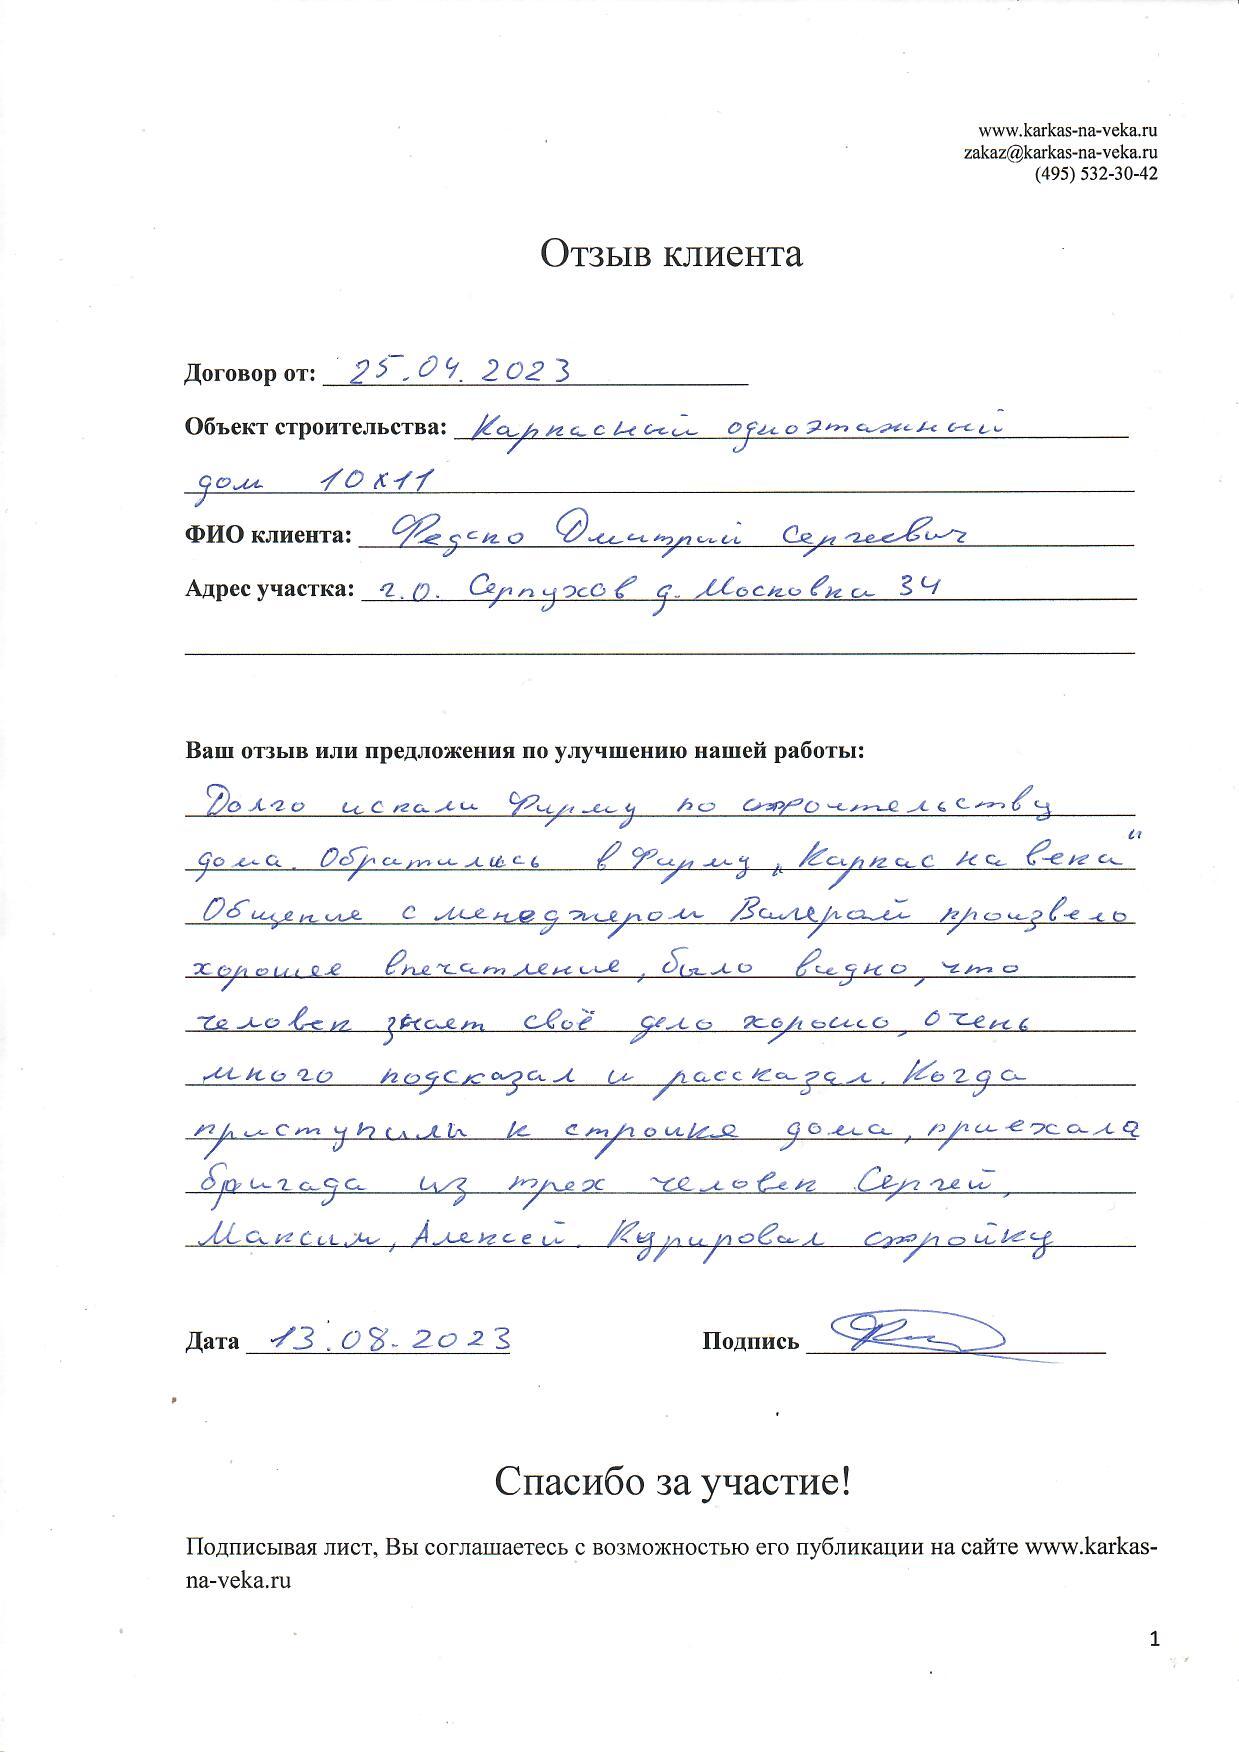 www.karkas-na-veka.ru
zakaz@karkas-na-veka.ru
(495) 532-30-42
Отзыв клиента
Договор от: 25.04.2023
Объект строительства: Каркасный одноэтажный
дом 10х11
ФИО клиента: Федско Дмитрий Сергеевич
Адрес участка: г.о. Серпухов д. Московка 34
Ваш отзыв или предложения по улучшению нашей работы:
Долго искали Фирму по строительству
дома. Обратились в Фирму „Каркас на века"
Общение с менеджером Валерой произвело
хорошее впечатление, было видно, что
человек знает своё дело хорошо, очень
много подсказал и рассказал. Когда
приступили к стройке дома, приехала
бригада из трех человек Сергей,
Максим, Алексей. Курировал стройку
Дата 13.08.2023 Подпись
Спасибо за участие!
Подписывая лист, Вы соглашаетесь с возможностью его публикации на сайте www.karkas-
na-veka.ru
1